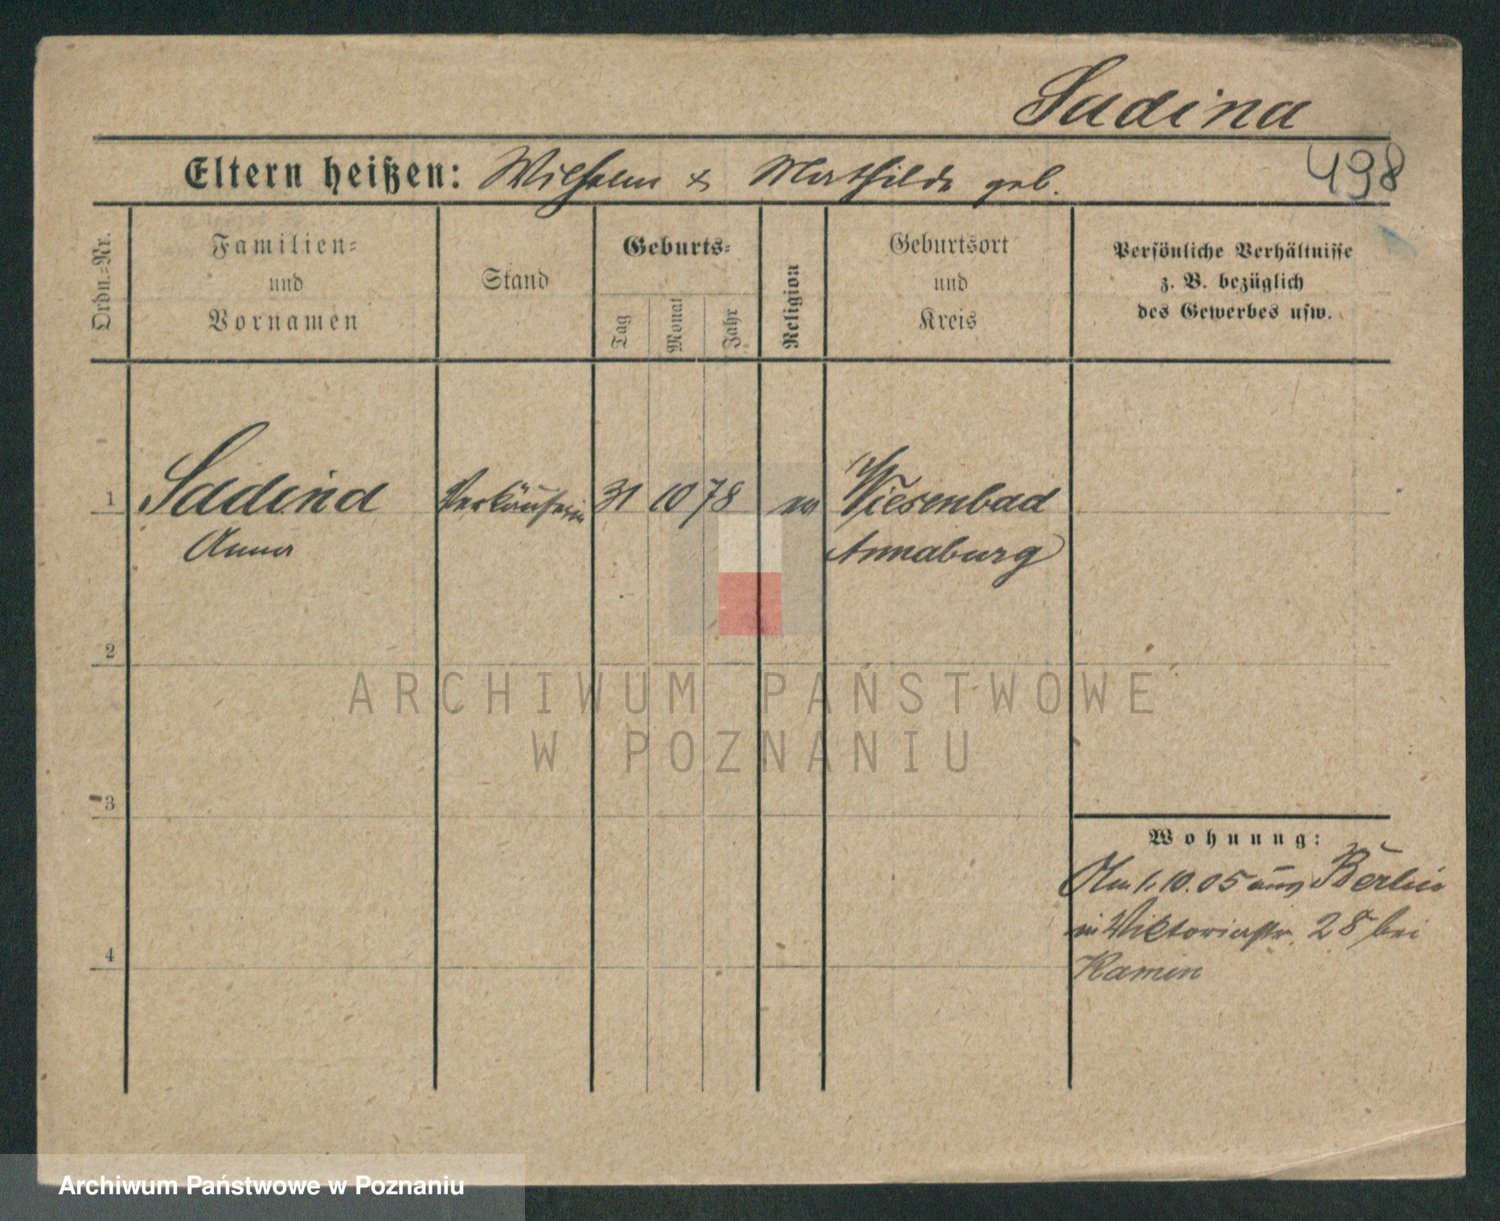 Sadina
Eltern heißen: Wilhelm & Mathilde geb.
498
Ordn.-Nr.
Familien-
und
Vornamen
Stand
Geburts-
Tag
Monat
Jahr
Religion
Geburtsort
und
Kreis
Persönliche Verhältnisse
z. B. bezüglich
des Gewerbes usw.
1
Sadina
Anna
Verkäuferin
31
10
78
ev
Wiesenbad
Annaburg
2
ARCHIWUM PAŃSTWOWE
W POZNANIU
3
Wohnung:
Am 1.10.05 aus Berlin
in Viktoriastr. 28 bei
Kamin
4
Archiwum Państwowe w Poznaniu